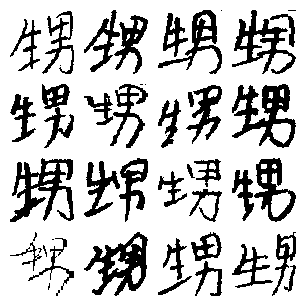 甥甥甥甥
甥甥甥甥
甥甥甥甥
甥甥甥甥